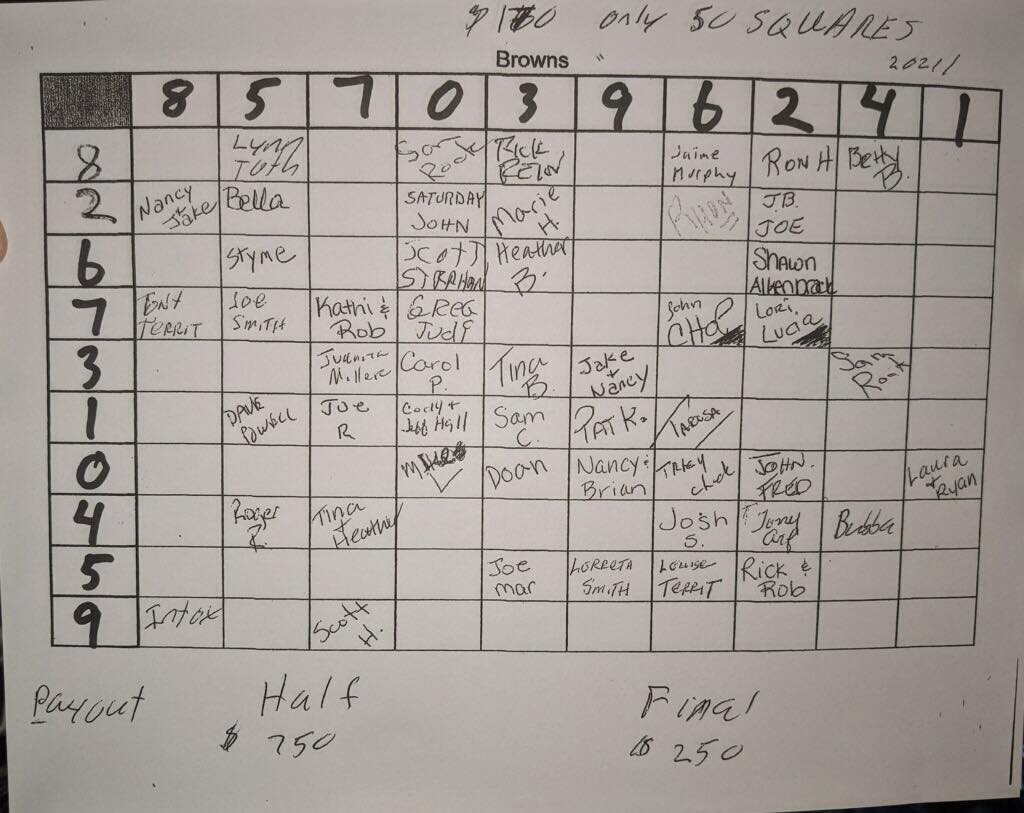 only 50 SQUARES
Browns "
2021/
8 5 7 0 3 9 6 2 4 1
8 Lynn Toth Sam Rook Rick Jaime Murphy RON H Betty B.
2 Nancy + Jake Bella SATURDAY JOHN Marie H. J.B. JOE
6 Styme SCOTT Heather B. SHAWN
7 ENT TERRIT Joe SMITH Kathi & Rob GREG Judi John CHO Lori Lucia
3 Juanita Carol P. Tina B. Jake + Nancy Sam Rook
1 DAVE POWELL Joe R Cody + Jeff Hall Sam C. PAT K.
0 Doan Nancy & Brian JOHN. FRED Laura + Ryan
4 Roger R. Tina + Heather Josh S. Tony Bubba
5 Joe Mar LORRETA SMITH LOUISE TERRIT Rick & Rob
9 Intox Scott H.
Payout Half Final
$ 250